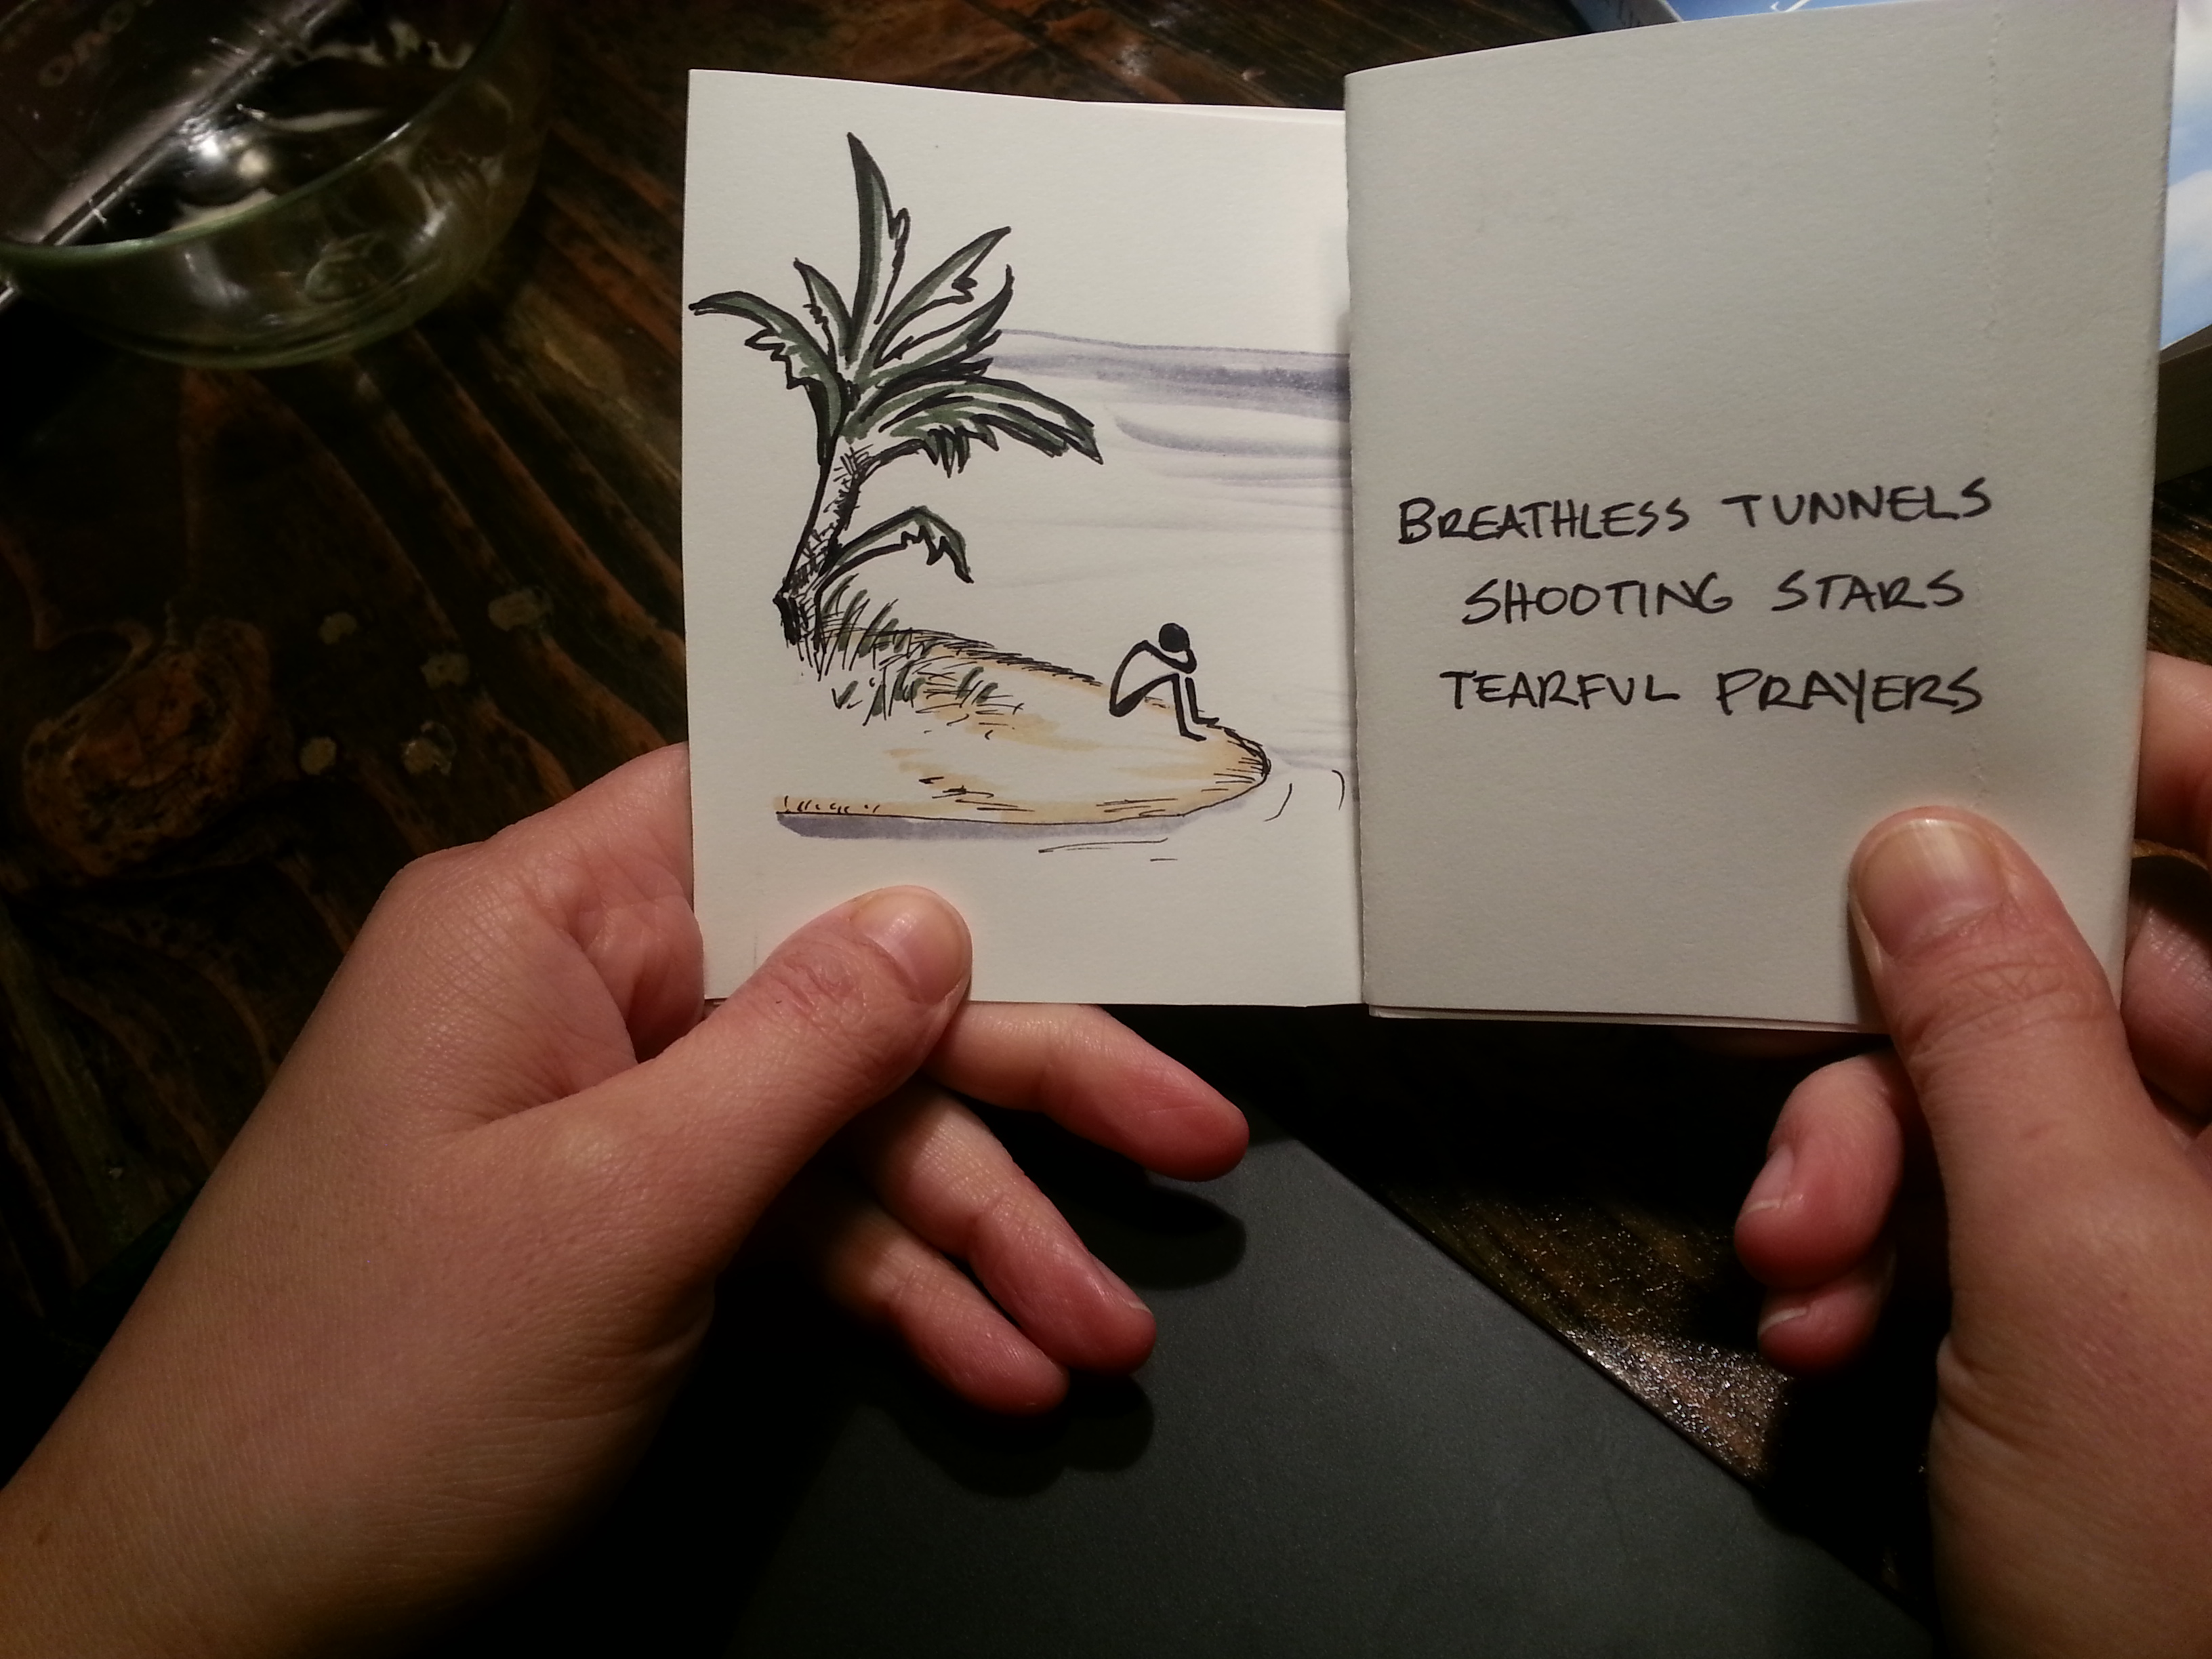 BREATHLESS TUNNELS
SHOOTING STARS
TEARFUL PRAYERS